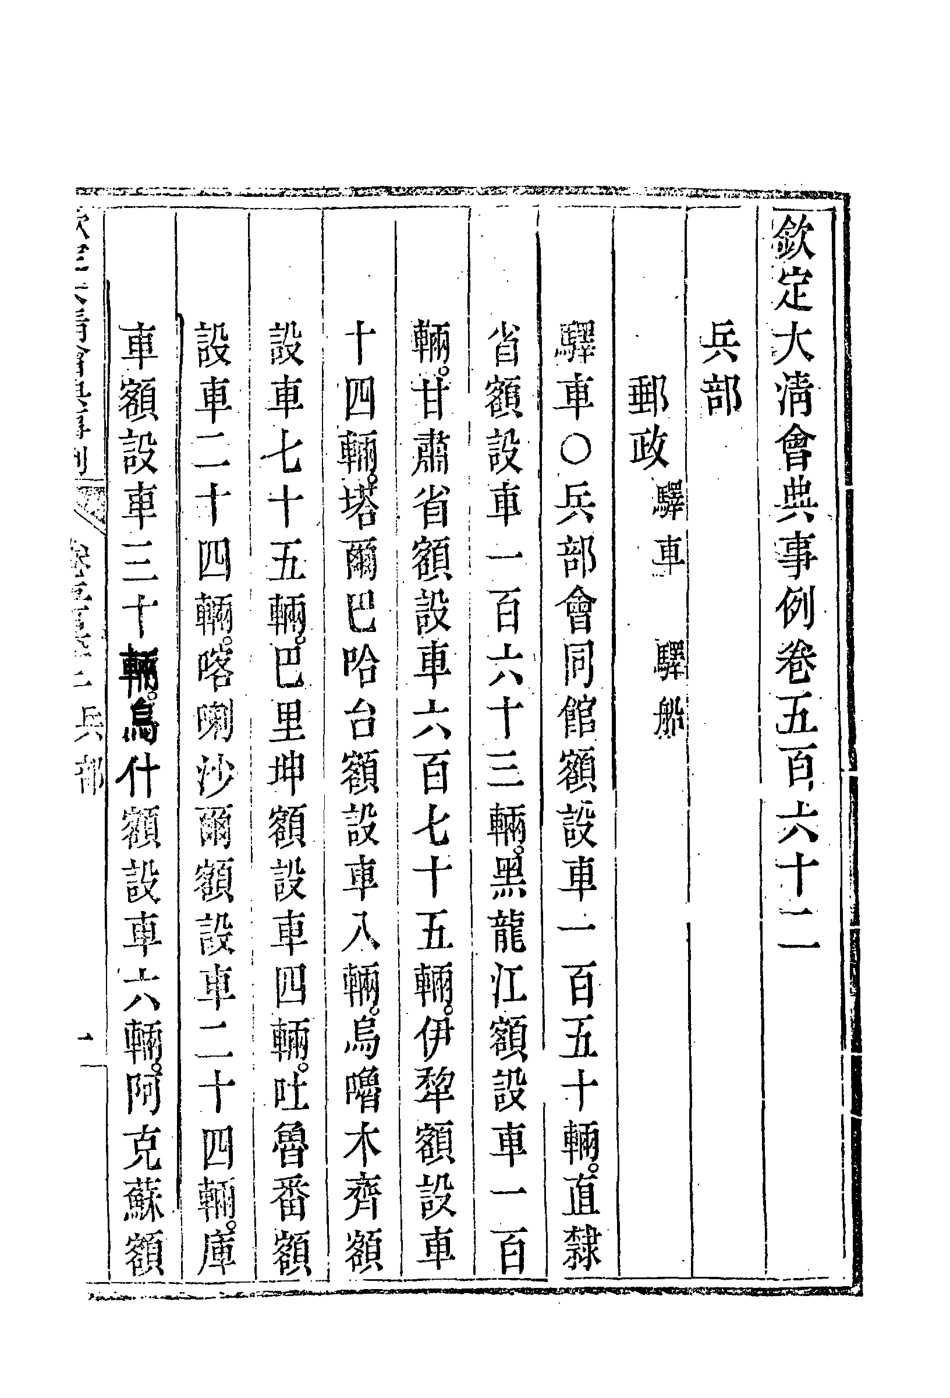 欽定大清會典事例卷五百六十二
兵部
郵政 驛車 驛船
驛車○兵部會同館額設車一百五十輛。直隸
省額設車一百六十三輛。黑龍江額設車一百
輛。甘肅省額設車六百七十五輛。伊犂額設車
十四輛。塔爾巴哈台額設車八輛。烏嚕木齊額
設車七十五輛。巴里坤額設車四輛。吐魯番額
設車二十四輛。喀喇沙爾額設車二十四輛。庫
車額設車三十輛。烏什額設車六輛。阿克蘇額
欽定大清會典事例 卷五百六十二 兵部 一